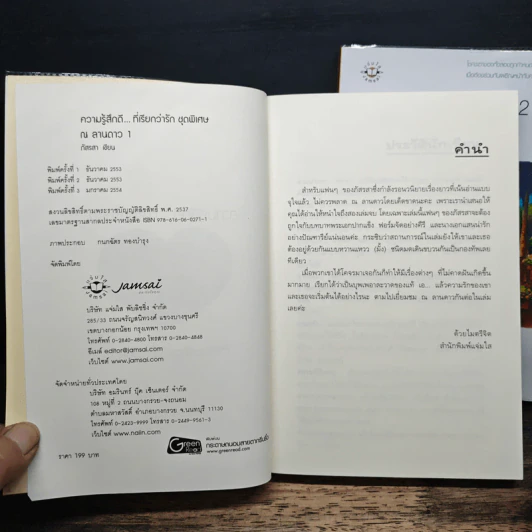 ความรู้สึกดี... ที่เรียกว่ารัก ชุดพิเศษ
ณ ลานดาว 1
ภัสรสา เขียน
พิมพ์ครั้งที่ 1 ธันวาคม 2553
พิมพ์ครั้งที่ 2 ธันวาคม 2553
พิมพ์ครั้งที่ 3 มกราคม 2554
สงวนลิขสิทธิ์ตามพระราชบัญญัติลิขสิทธิ์ พ.ศ. 2537
เลขมาตรฐานสากลประจำหนังสือ ISBN 978-616-06-0271-1
ภาพประกอบ กนกฉัตร ทองบำรุง
จัดพิมพ์โดย
jamsai
บริษัท แจ่มใส พับลิชชิ่ง จำกัด
285/33 ถนนจรัญสนิทวงศ์ แขวงบางขุนศรี
เขตบางกอกน้อย กรุงเทพฯ 10700
โทรศัพท์ 0-2840-4800 โทรสาร 0-2840-4840
อีเมล์ editor@jamsai.com
เว็บไซต์ www.jamsai.com
จัดจำหน่ายทั่วประเทศโดย
บริษัท อมรินทร์ บุ๊ค เซ็นเตอร์ จำกัด
108 หมู่ที่ 2 ถนนบางกรวย-จงถนอม
ตำบลมหาสวัสดิ์ อำเภอบางกรวย จ.นนทบุรี 11130
โทรศัพท์ 0-2423-9999 โทรสาร 0-2449-9561-3
เว็บไซต์ www.naiin.com
ราคา 199 บาท
Green Read
กระดาษถนอมสายตากรีนรี้ด
www.greenread.com
คำนำ
สำหรับแฟนๆ ของภัสรสาซึ่งกำลังรอนวนิยายเรื่องยาวที่เน้นอ่านแบบ
จุใจแล้ว ไม่ควรพลาด ณ ลานดาวโดยเด็ดขาดนะคะ เพราะเรานำเสนอให้
คุณได้อ่านให้หนำใจถึงสองเล่มจบ โดยเฉพาะเล่มนี้แฟนๆ ของภัสรสาจะต้อง
ถูกใจกับบทบาทพระเอกปากแข็ง ฟอร์มจัดอย่างคีรี และนางเอกแสนน่ารัก
อย่างปัณฑารีย์แน่นอนค่ะ กระซิบว่าสถานการณ์ในเล่มยังให้เขาและเธอ
ต้องอยู่ด้วยกันแบบหวานแหวว (มั้ง) ชนิดมดเดินขบวนกันเป็นกองทัพเลย
ทีเดียว
เมื่อพวกเขาได้โคจรมาเจอกันก็ทำให้มีเรื่องต่างๆ ที่ไม่คาดฝันเกิดขึ้น
มากมาย เรียกได้ว่าเป็นบุพเพอาละวาดของแท้ เอ... แล้วความรักของเขา
และเธอจะเริ่มต้นได้อย่างไรนะ ตามไปเยี่ยมชม ณ ลานดาวกันต่อในเล่ม
เลยค่ะ
ด้วยไมตรีจิต
สำนักพิมพ์แจ่มใส
2